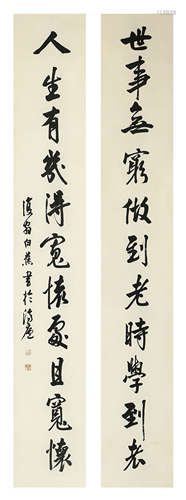 世事無窮做到老時學到老
人生有幾得寬懷處且寬懷
白蕉書於